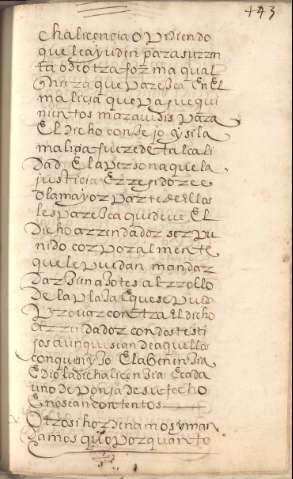 443
cha licencia o pidiendo
que le ayuden para su rren
ta o de otra forma qual
quiera que paresca en el
malicia que pague qui
nientos maravidis para
El dicho concejo y si la
malicia fuere de tal cali
dad, E la persona que la
justicia E rregidores e
o la mayor parte de ellos
les paresca que deve El
dicho arrendador ser pu
nido corporalmente
que le puedan mandar
dar açotes al rrollo
de la plaça E que se pueda
provar contra El dicho
arrendador con dos testi
gos aunque sean de aquellos
con quien yzo E la
E dio la dicha licencia E cada
uno deponga de su fecho
E no sean contentos
Otrosi hordenamos y man
damos que por quanto